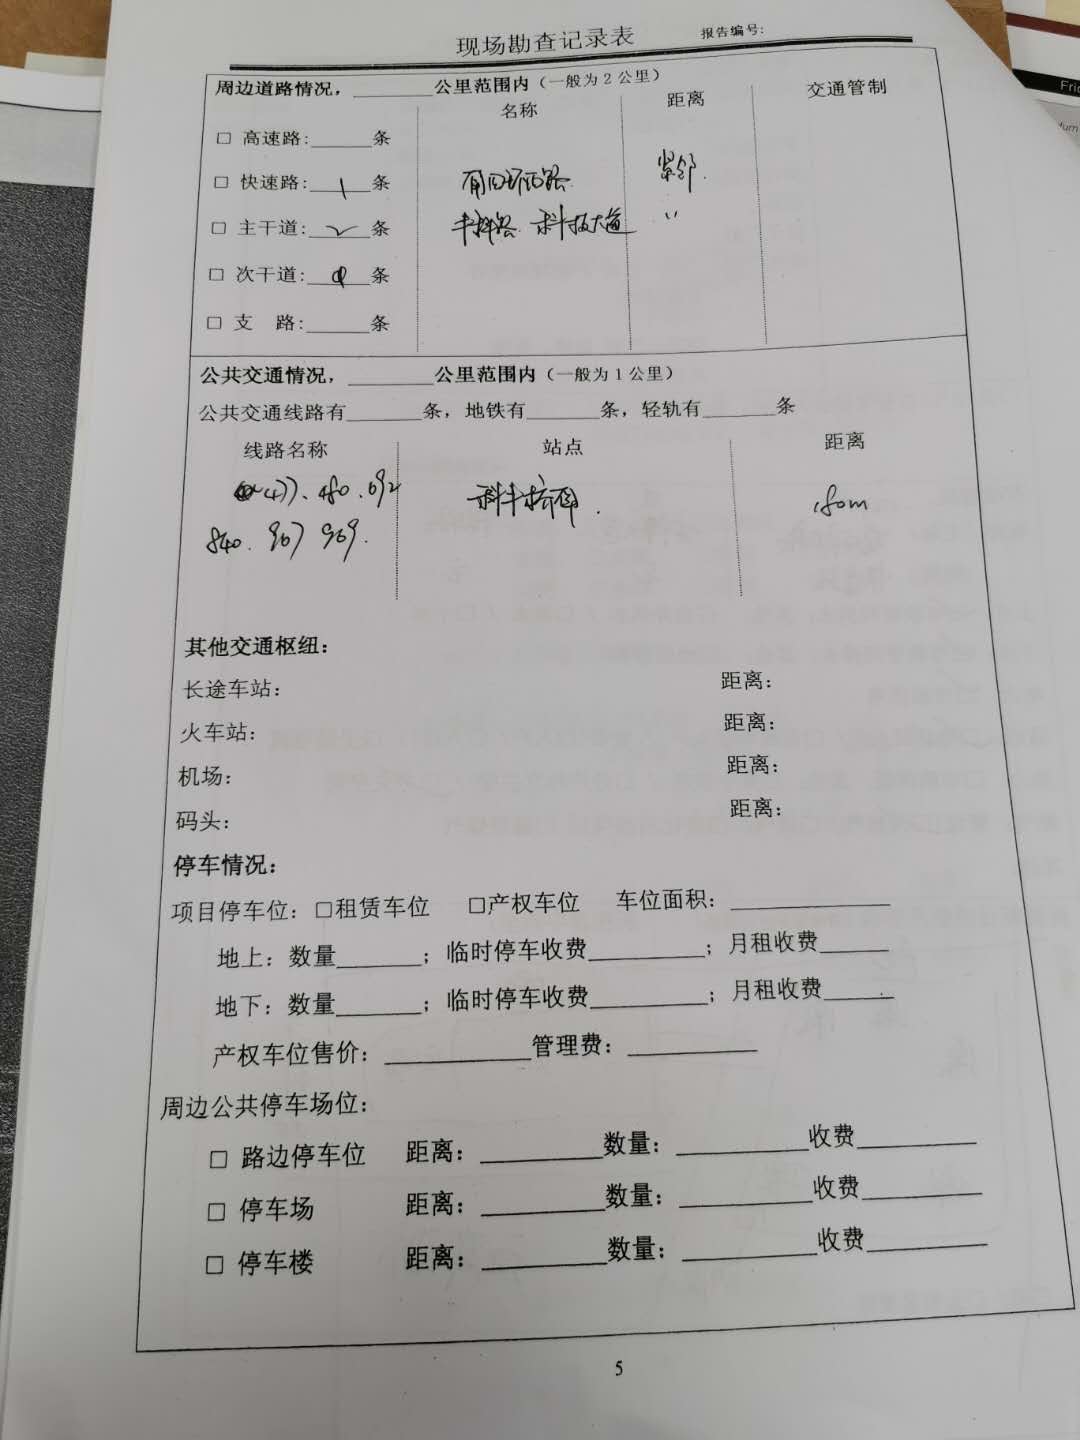 现场勘查记录表 报告编号:
周边道路情况，________公里范围内（一般为2公里）
名称 距离 交通管制
□ 高速路:______条
□ 快速路: 1 条 紧邻.
□ 主干道: 2 条 科技大道 〃
□ 次干道:______条
□ 支 路:______条
公共交通情况，________公里范围内（一般为1公里）
公共交通线路有_______条，地铁有_______条，轻轨有_______条
线路名称 站点 距离
477、480、692
840、967 969.
其他交通枢纽：
长途车站： 距离：
火车站： 距离：
机场： 距离：
码头： 距离：
停车情况：
项目停车位：□租赁车位 □产权车位 车位面积：______________
地上：数量_______；临时停车收费__________；月租收费______
地下：数量_______；临时停车收费__________；月租收费______
产权车位售价：____________管理费：___________
周边公共停车场位：
□ 路边停车位 距离：__________数量：___________收费__________
□ 停车场 距离：__________数量：___________收费__________
□ 停车楼 距离：__________数量：___________收费__________
5